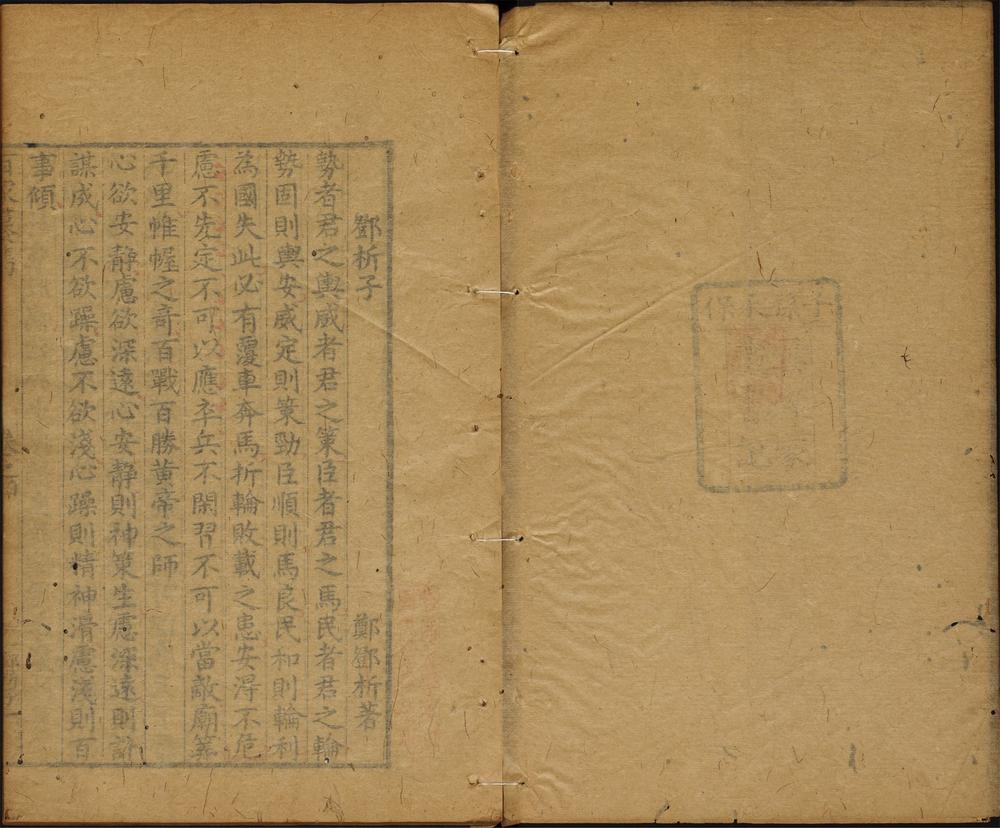 鄧析子　鄭鄧析著
勢者君之輿威者君之策臣者君之馬民者君之輪
勢固則輿安威定則策勁臣順則馬良民和則輪利
為國失此必有覆車奔馬折輪敗載之患安淂不危
慮不先定不可以應卒兵不閑習不可以當敵廟筭
千里帷幄之奇百戰百勝黃帝之師
心欲安静慮欲深遠心安静則神策生慮深遠則計
謀成心不欲躁慮不欲淺心躁則精神滑慮淺則百
事傾